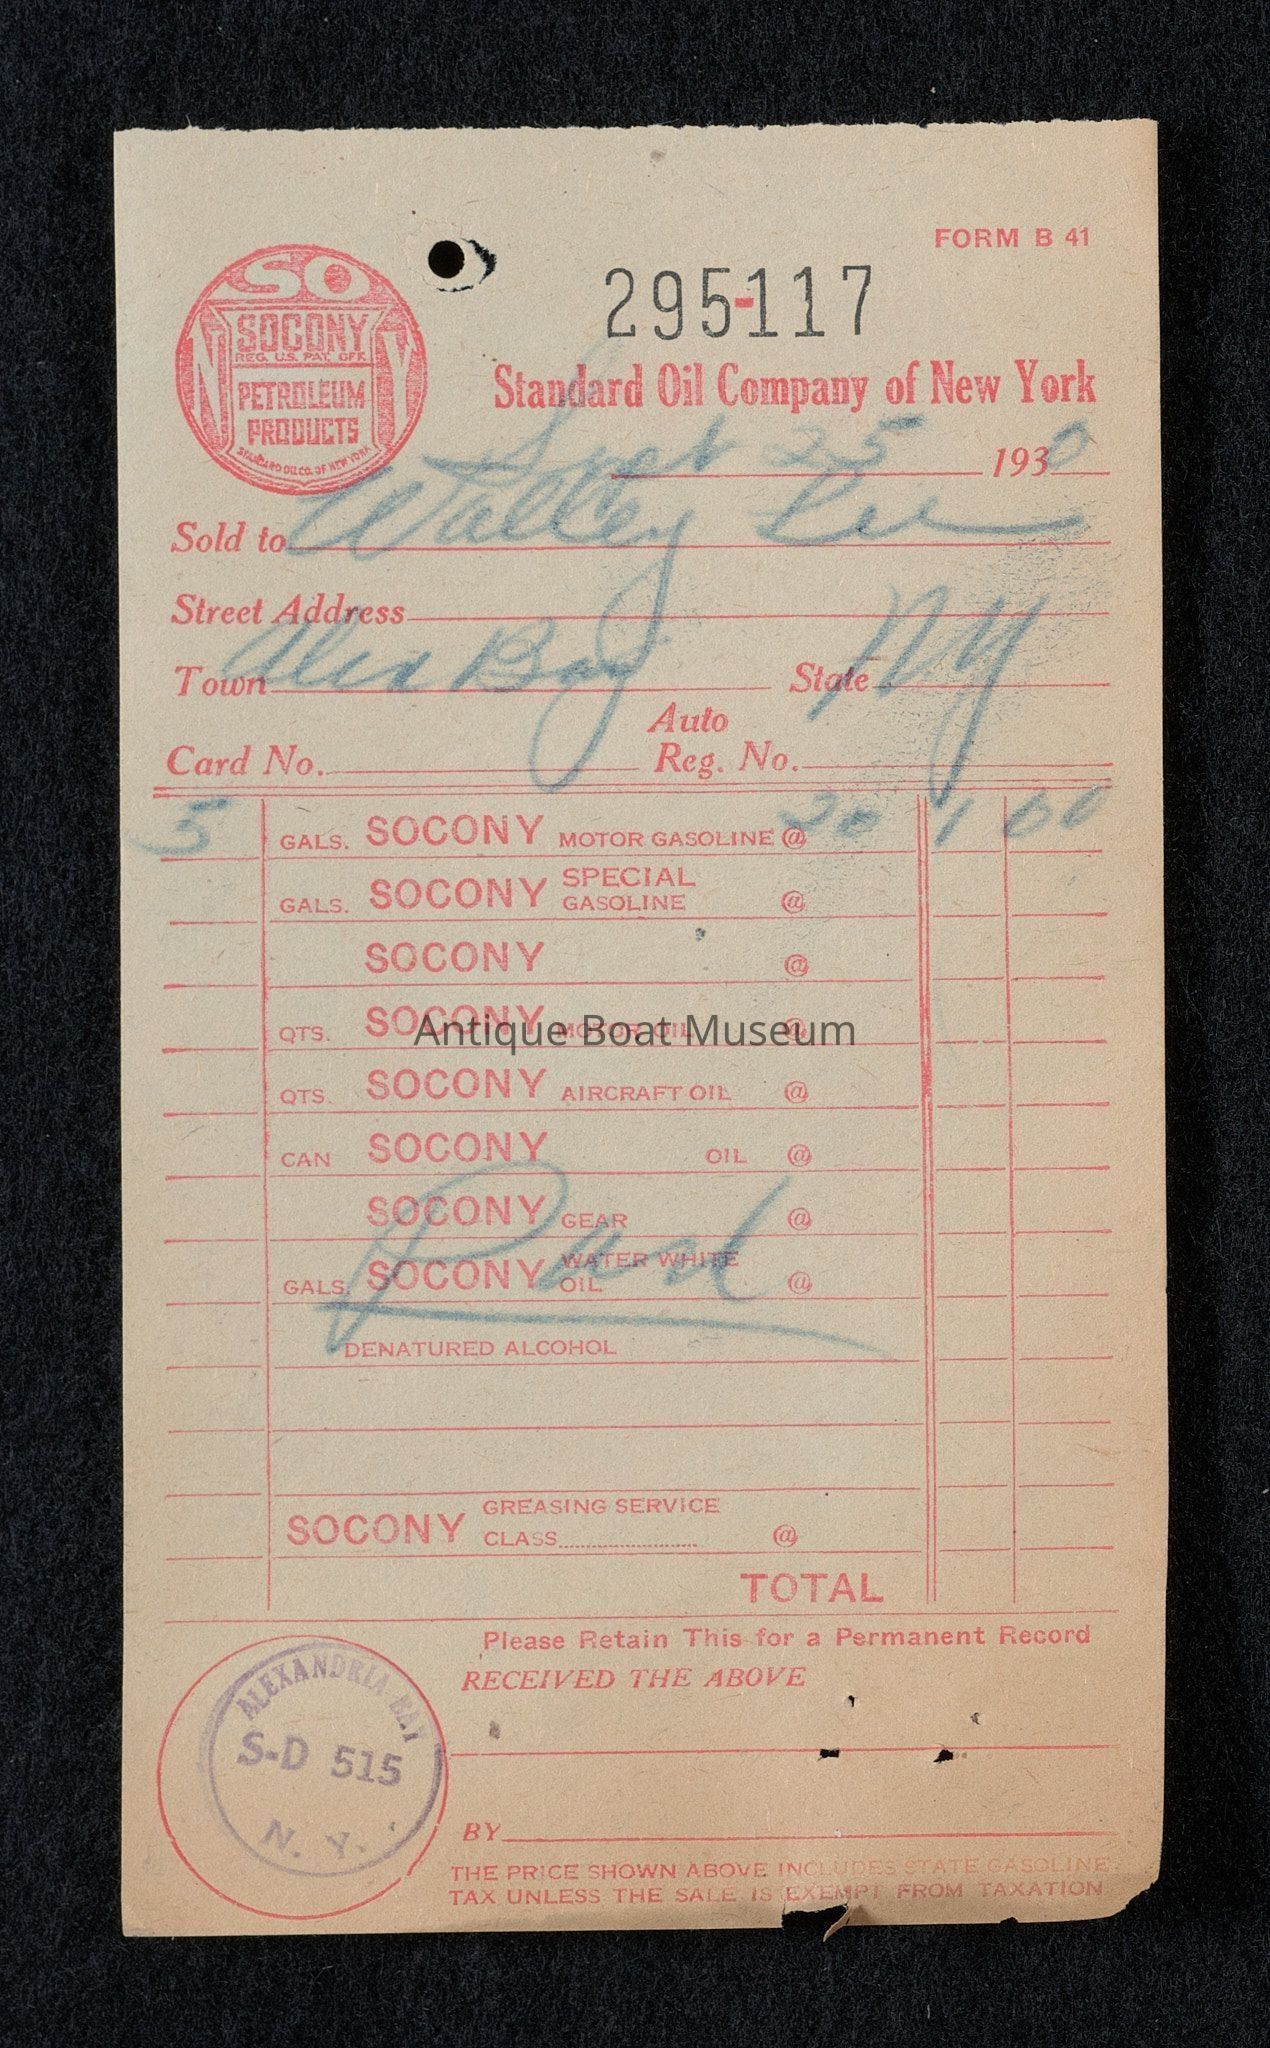 FORM B 41
SO
NY
SOCONY
REG. U.S. PAT. OFF.
PETROLEUM
PRODUCTS
STANDARD OIL CO. OF NEW YORK
295-117
Standard Oil Company of New York
Sept 25 1930
Sold to Walley Lee
Street Address
Town Alex Bay State NY
Auto
Card No. Reg. No.
5 GALS. SOCONY MOTOR GASOLINE @ 20 1 00
GALS. SOCONY SPECIAL GASOLINE @
SOCONY @
QTS. SOCONY MOTOR OIL @
Antique Boat Museum
QTS. SOCONY AIRCRAFT OIL @
CAN SOCONY OIL @
SOCONY GEAR @
GALS. SOCONY WATER WHITE OIL @
Paid
DENATURED ALCOHOL
SOCONY GREASING SERVICE
CLASS @
TOTAL
Please Retain This for a Permanent Record
RECEIVED THE ABOVE
ALEXANDRIA BAY
S-D 515
N. Y.
BY
THE PRICE SHOWN ABOVE INCLUDES STATE GASOLINE
TAX UNLESS THE SALE IS EXEMPT FROM TAXATION